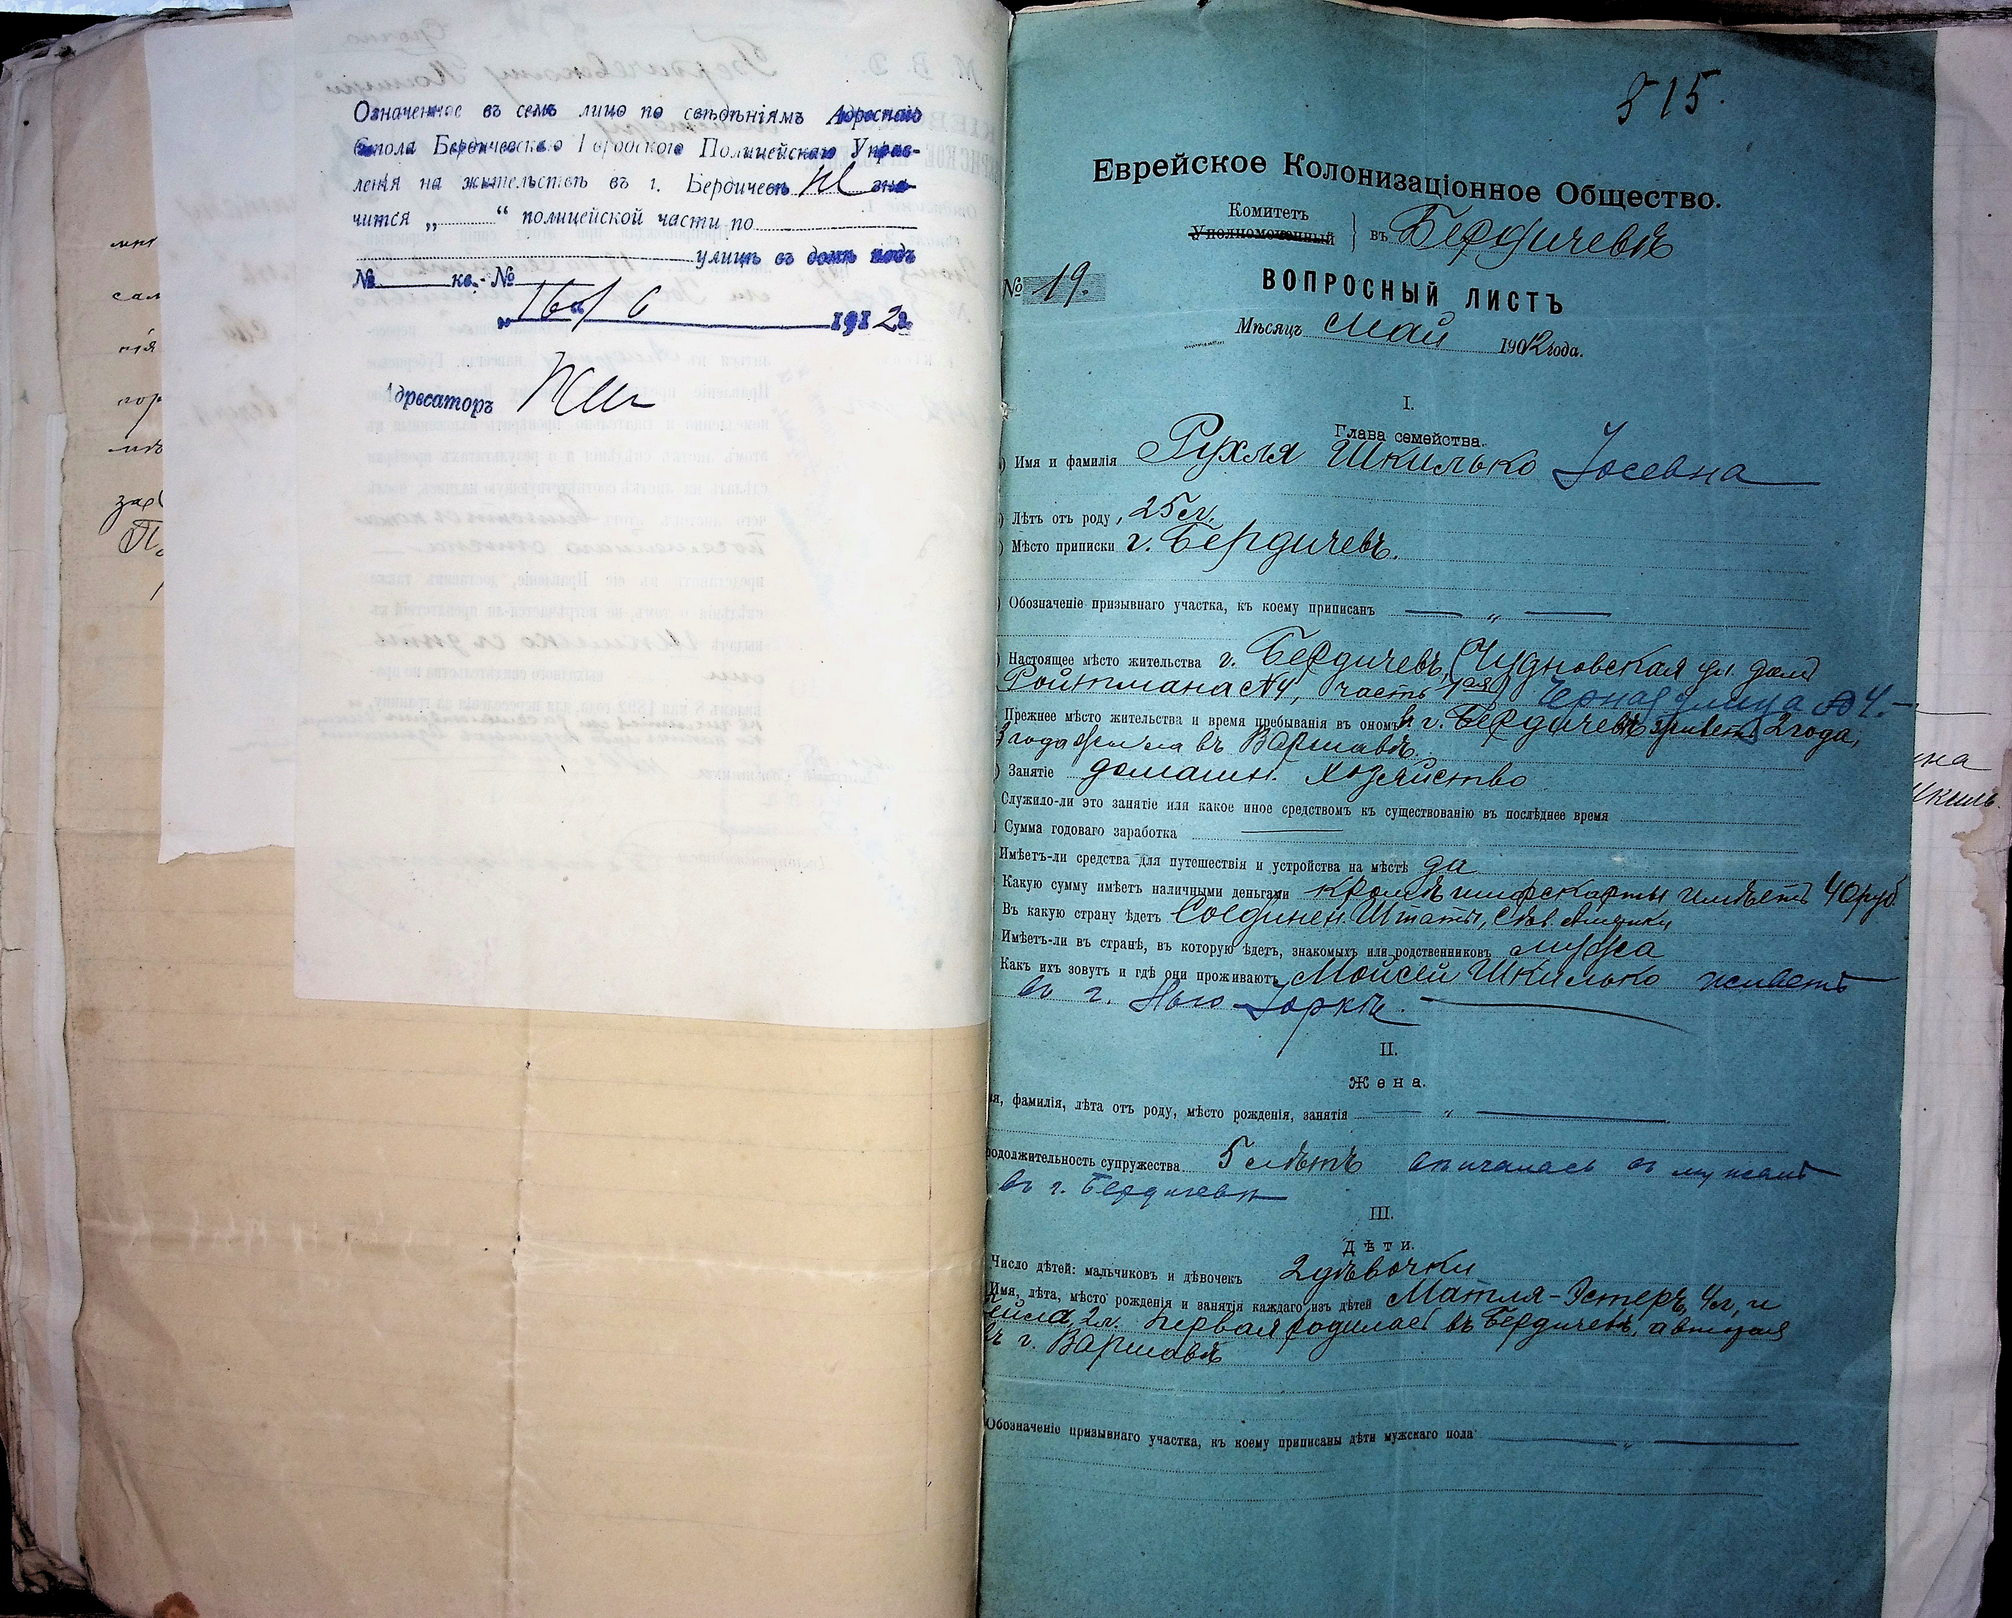 Означенное въ семъ лицо по свѣдѣніямъ Адреснаго
Стола Бердичевскаго Городского Полицейскаго Управ-
ленія на жительствѣ въ г. Бердичевѣ не зна-
чится „ “ полицейской части по
улицѣ въ домѣ подъ
№ кв. №
„16“/6 1912 г.
Адресаторъ
515.
Еврейское Колонизаціонное Общество.
Комитетъ
Уполномоченный } въ Бердичевѣ
№ 19.
ВОПРОСНЫЙ ЛИСТЪ
Мѣсяцъ Май 1912 года.
I.
Глава семейства.
Имя и фамилія Рухля Шкилько Іосевна
Лѣтъ отъ роду, 25 л.
Мѣсто приписки г. Бердичевъ.
Обозначеніе призывнаго участка, къ коему приписанъ — „ —
Настоящее мѣсто жительства г. Бердичевъ, (Чудновская ул. домъ
Ройтмана №4, часть 1ая) Черная улица №4.
Прежнее мѣсто жительства и время пребыванія въ ономъ въ г. Бердичевѣ живетъ 2 года,
3 года жила въ Варшавѣ.
Занятіе домашн. хозяйство
Служило-ли это занятіе или какое иное средствомъ къ существованію въ послѣднее время
Сумма годоваго заработка —
Имѣетъ-ли средства для путешествія и устройства на мѣстѣ да
Какую сумму имѣетъ наличными деньгами кромѣ шифскарты имѣетъ 40 руб
Въ какую страну ѣдетъ Соединен. Штаты, Сѣв. Америки
Имѣетъ-ли въ странѣ, въ которую ѣдетъ, знакомыхъ или родственниковъ мужа
Какъ ихъ зовутъ и гдѣ они проживаютъ Мойсей Шкилько живетъ
въ г. Нью Іоркѣ.
II.
Жена.
я, фамилія, лѣта отъ роду, мѣсто рожденія, занятія — „ —
родолжительность супружества 5 лѣтъ вѣнчалась съ мужемъ
въ г. Бердичевѣ
III.
Дѣти.
Число дѣтей: мальчиковъ и дѣвочекъ 2 дѣвочки
Имя, лѣта, мѣсто рожденія и занятія каждаго изъ дѣтей Матля-Эстеръ, 4 л, и
2 л. первая родилась въ Бердичевѣ, а вторая
въ г. Варшавѣ
Обозначеніе призывнаго участка, къ коему приписаны дѣти мужскаго пола — „ —